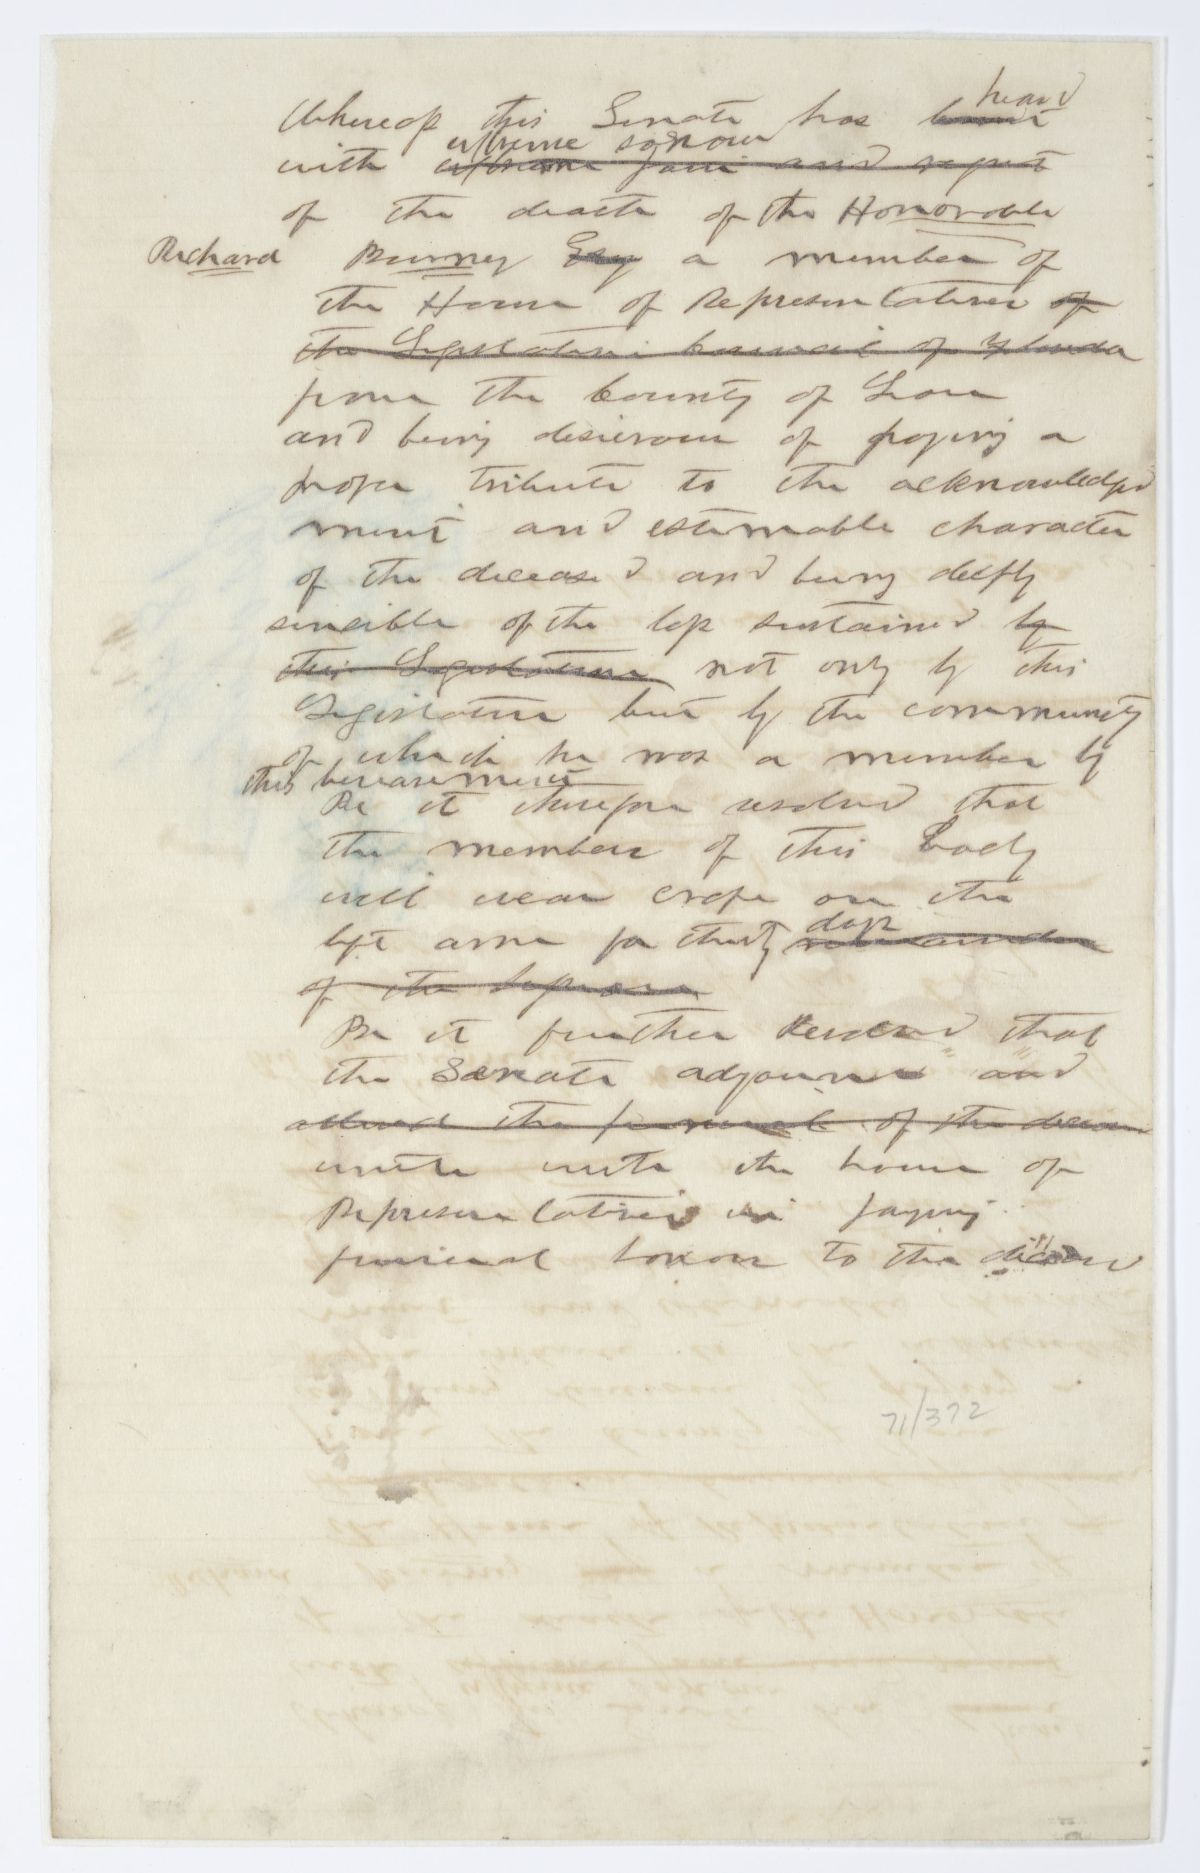 heard
Whereas this Senate has learnt
extreme sorrow
with extreme pain and regret
of the death of the Honorable
Richard Burney Esq a member of
the House of Representatives of
the Legislative Council of Florida
from the County of Leon
and being desierous of paying a
proper tribute to the acknowledged
merit and estimable character
of the deceased and being deeply
sensible of the loss sustained by
this Legislature not only by this
Legislature but by the community
of which he was a member by
this bereavement
Be it therefore resolved that
the members of this Body
will wear crape on the
days
left arm for thirty remainder
of the Session
Be it further Resolved that
the Senate adjourn and
attend the funeral of the deceased
unite with the house of
Representatives in paying
funeral honors to the deceased
71/372